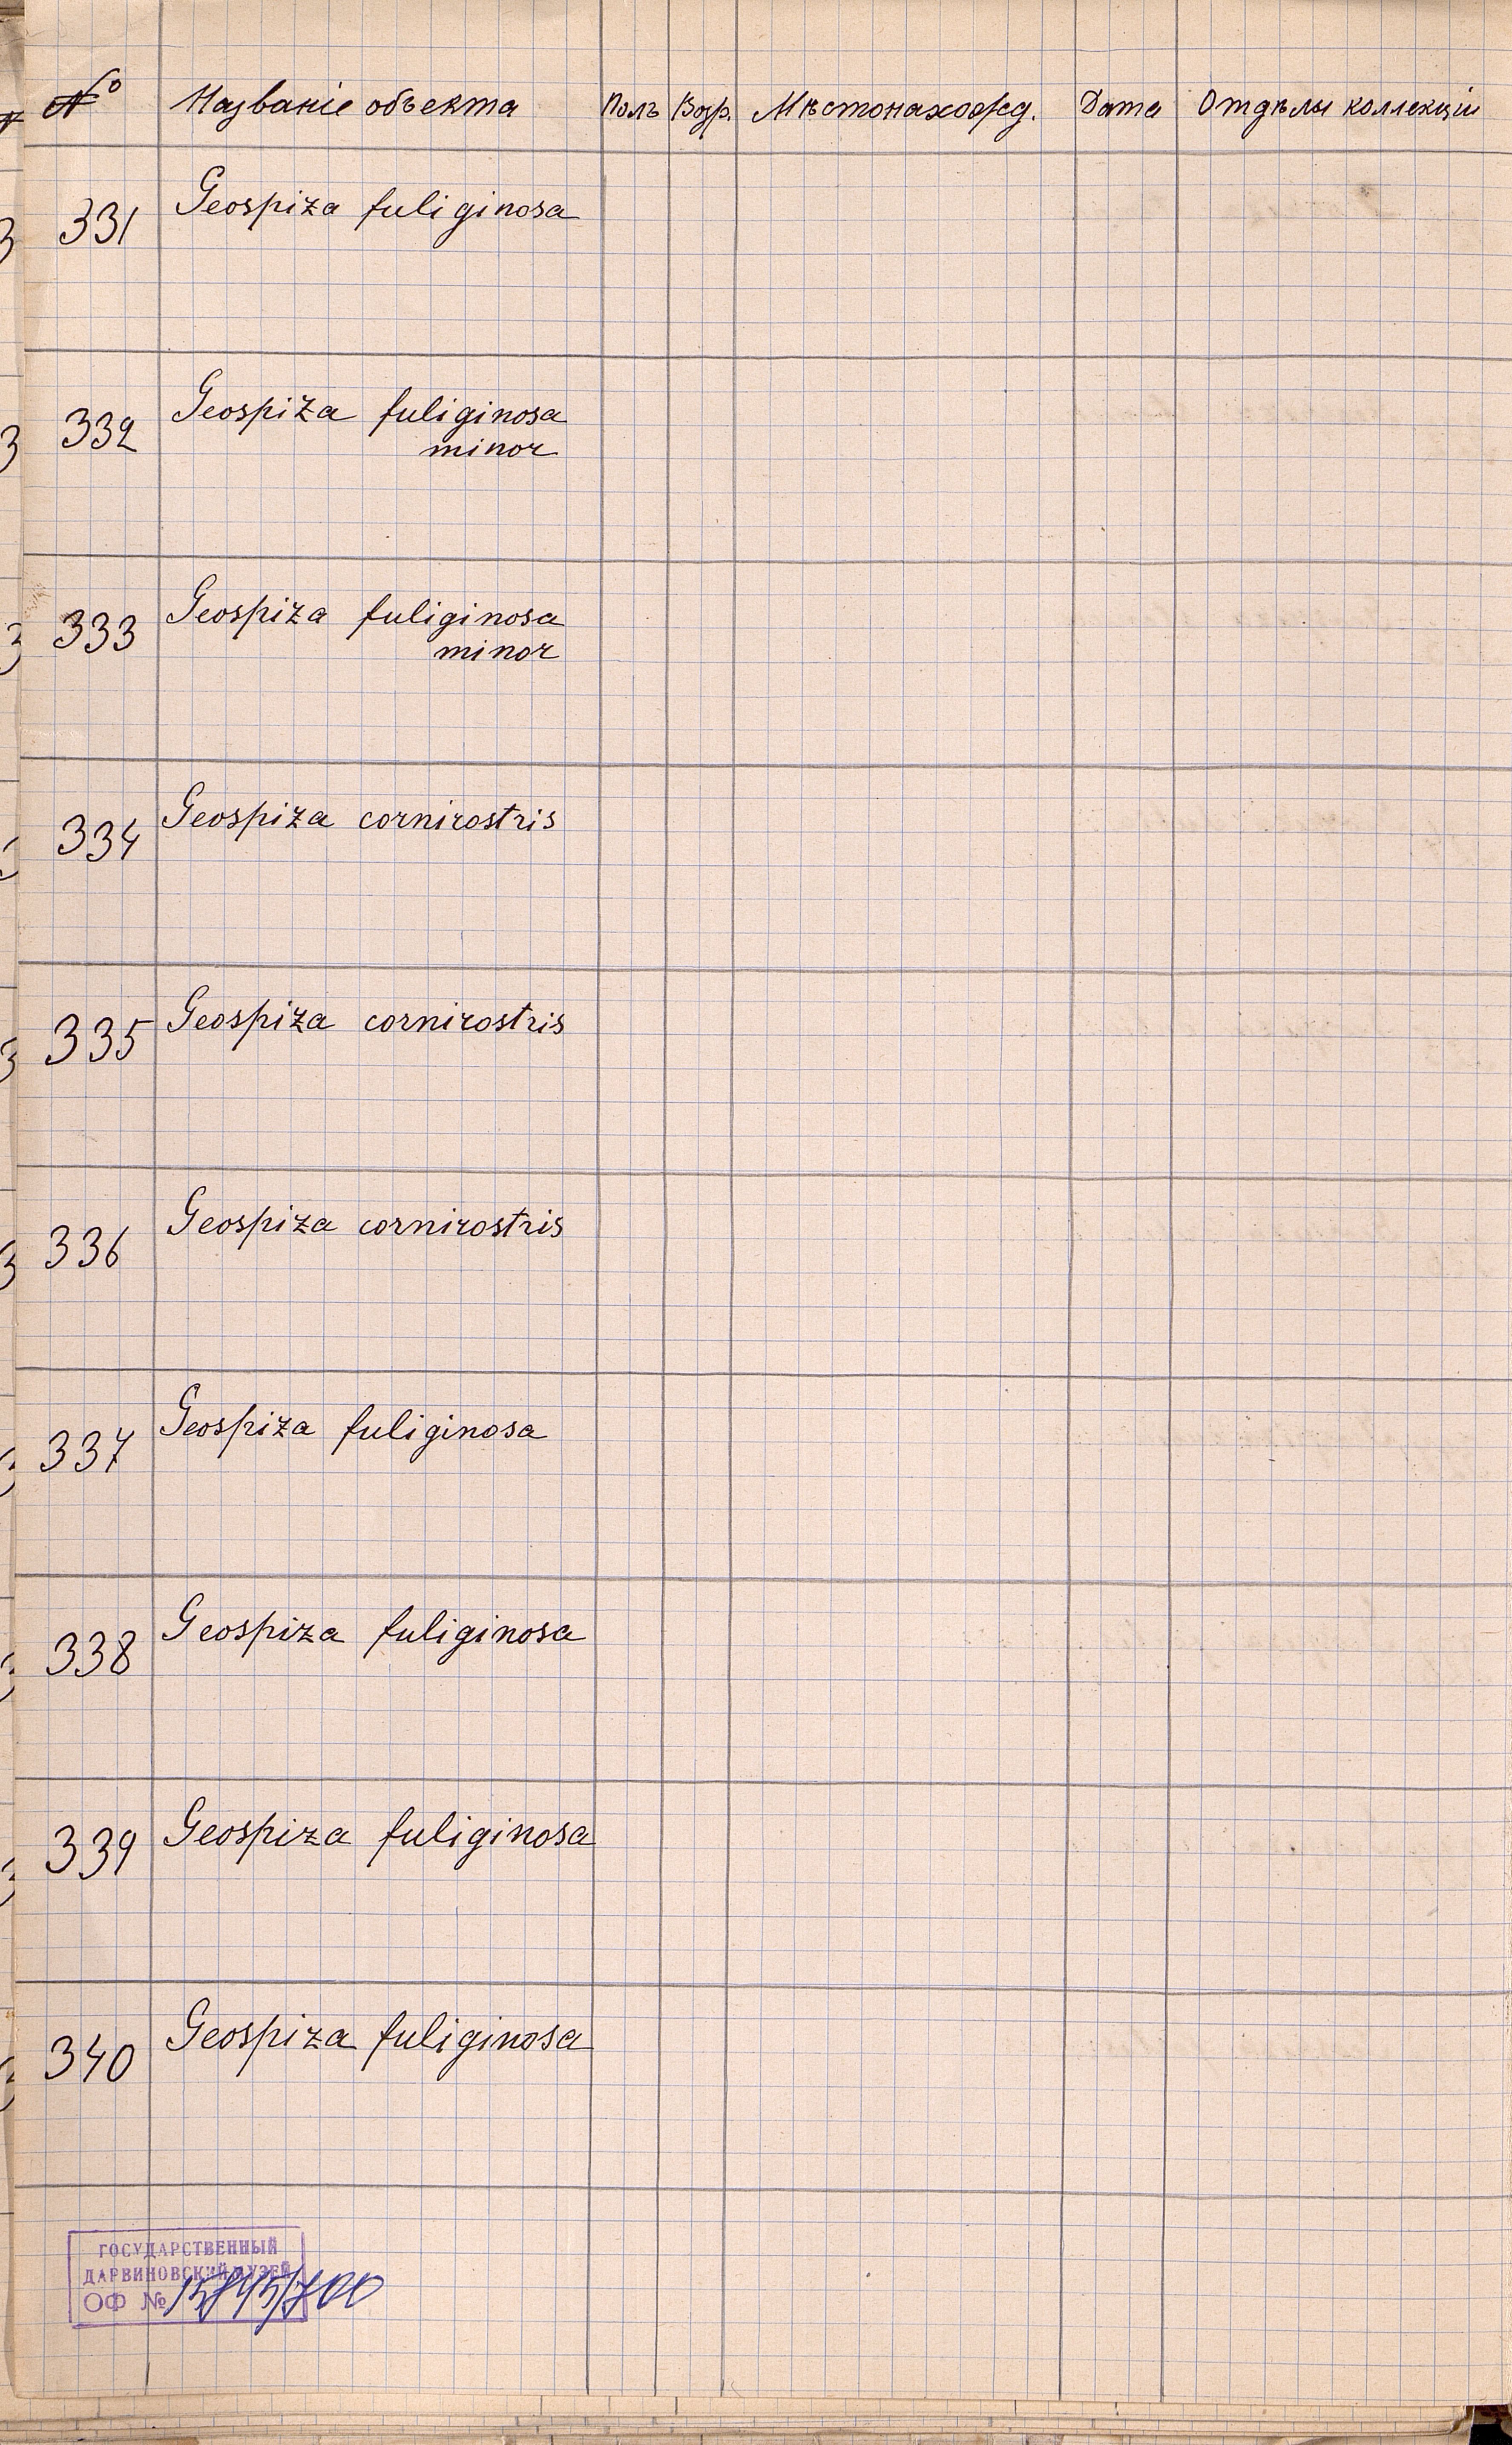 № Названіе объекта Полъ Возр. Мѣстонахожд. Дата Отдѣлы коллекціи
331 Geospiza fuliginosa
332 Geospiza fuliginosa
minor
333 Geospiza fuliginosa
minor
334 Geospiza cornirostris
335 Geospiza cornirostris
336 Geospiza cornirostris
337 Geospiza fuliginosa
338 Geospiza fuliginosa
339 Geospiza fuliginosa
340 Geospiza fuliginosa
ГОСУДАРСТВЕННЫЙ
ДАРВИНОВСКИЙ МУЗЕЙ
ОФ №